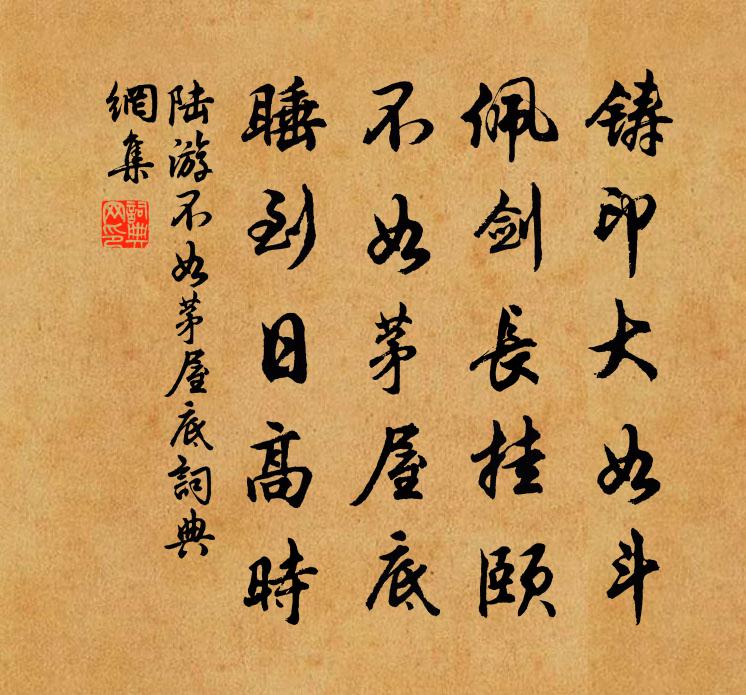 铸印大如斗
佩剑長挂頤
不如茅屋底
睡到日高時
陆游不如茅屋底詞典
網集
詞典
网印